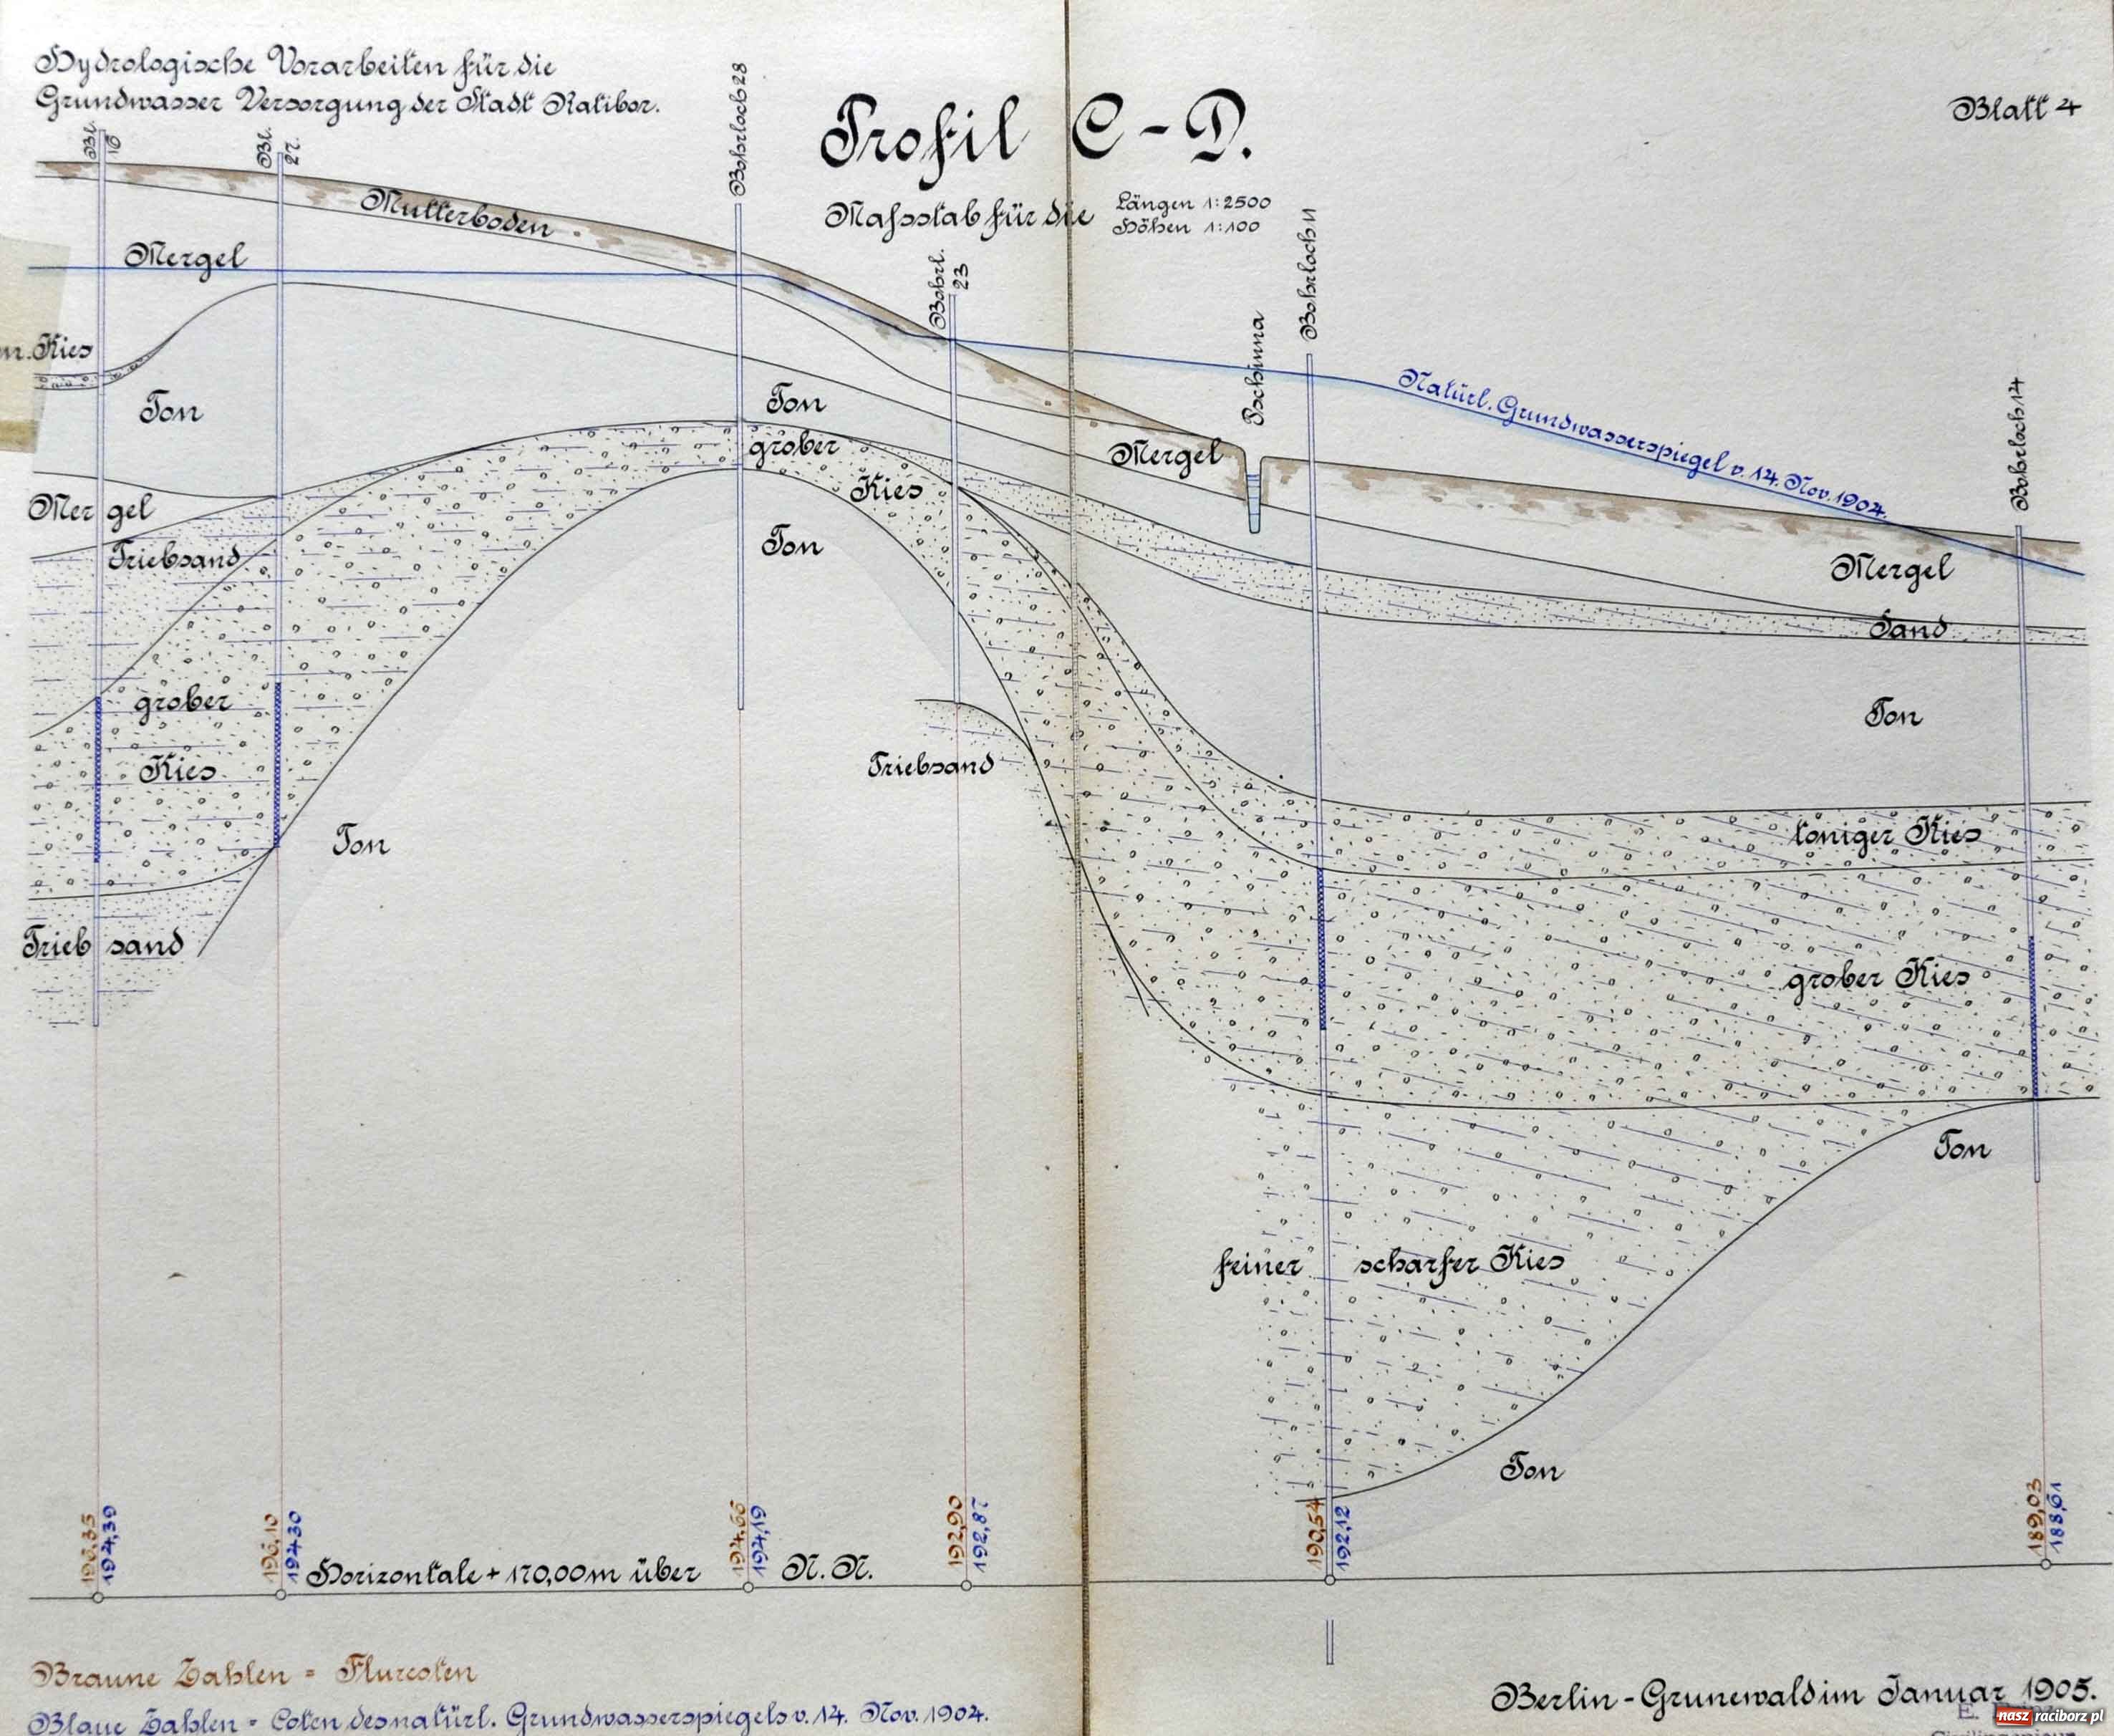 Hydrologische Vorarbeiten für die
Grundwasser Versorgung der Stadt Ratibor.
Profil C-D.
Massstab für die
Längen 1:2500
Höhen 1:100
Blatt 4
Bl.
Bl.
27.
Bohrloch 28
Bohrl.
23
Pschinna
Bohrloch 11
Bohrloch 14
Mutterboden
Mergel
Kies
Ton
Mergel
Triebsand
grober
Kies
Triebsand
Ton
Ton
grober
Kies
Ton
Triebsand
Mergel
Natürl. Grundwasserspiegel v. 14. Nov. 1904.
Mergel
Sand
Ton
toniger Kies
grober Kies
Ton
feiner scharfer Kies
Ton
196,35
194,39
196,10
194,30
194,66
194,19
192,90
192,87
190,54
192,12
189,03
188,61
Horizontale + 170,00m über N.N.
Braune Zahlen = Flurcoten
Blaue Zahlen = Coten des natürl. Grundwasserspiegels v. 14. Nov. 1904.
Berlin-Grunewald im Januar 1905.
E.
nasz raciborz pl